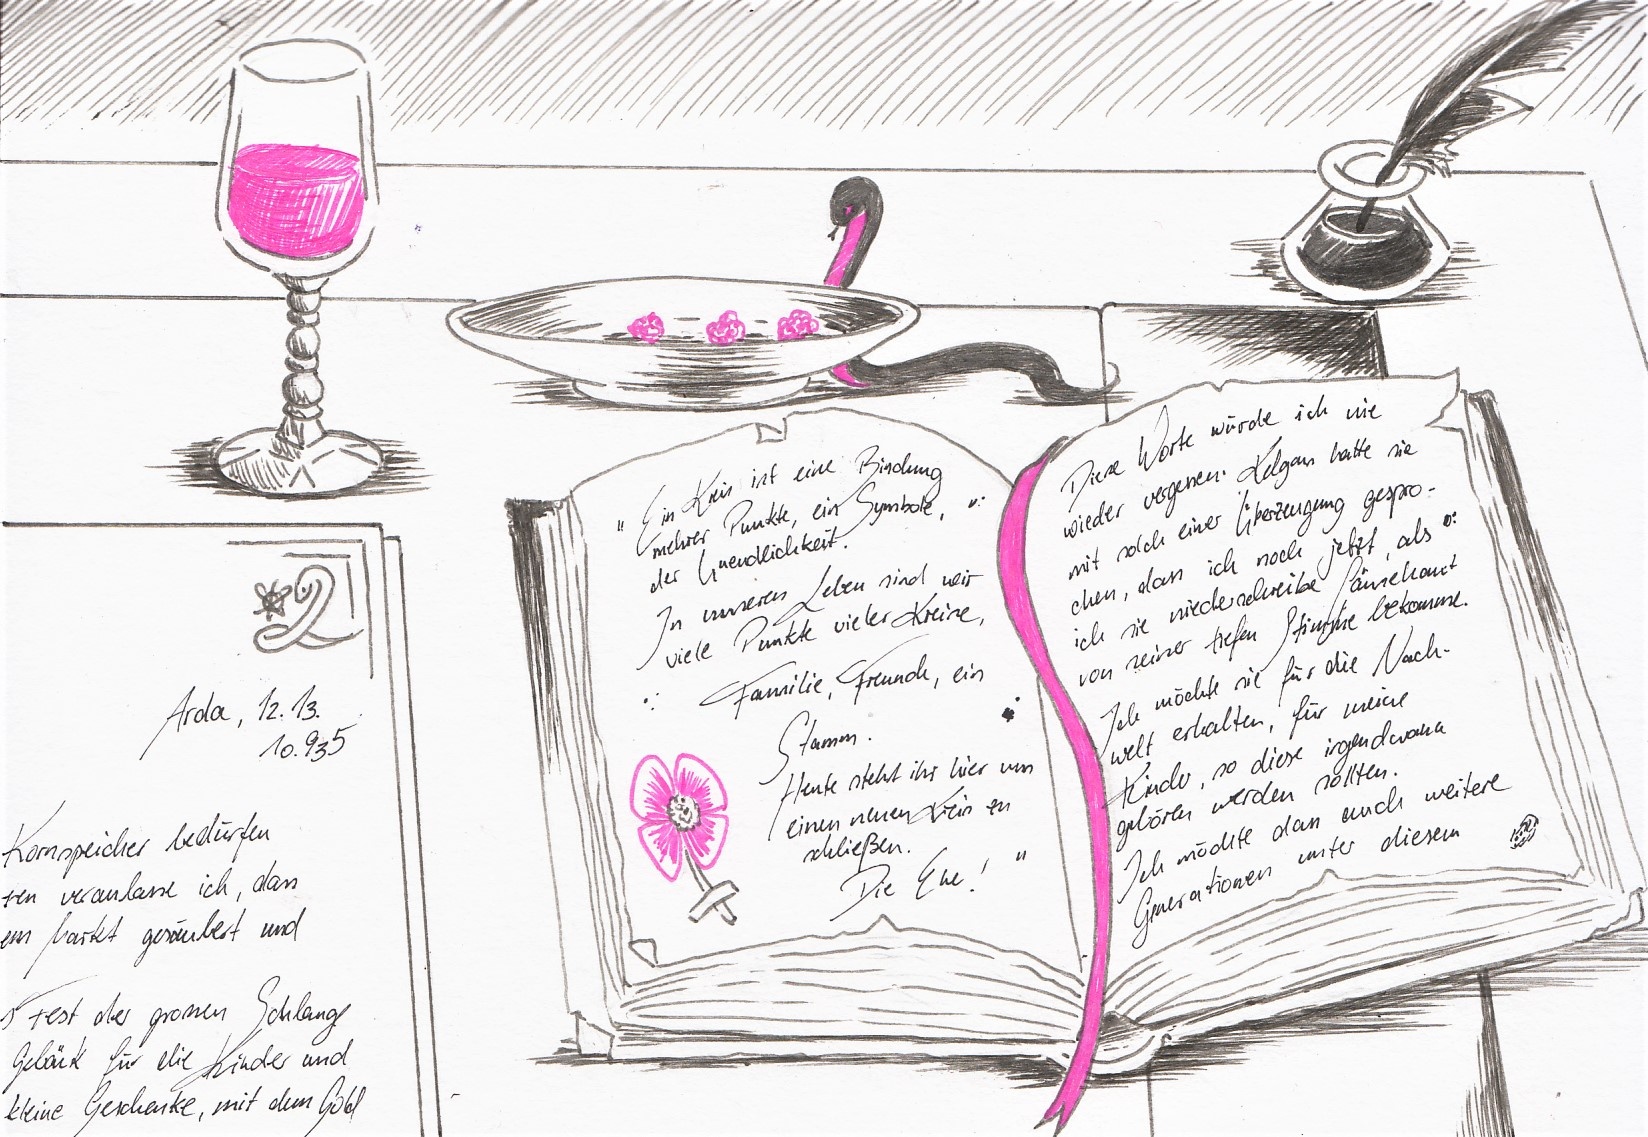 Arda, 12.13.
10.935
Kornspeicher bedürfen
ren veranlasse ich, dass
em Markt gesäubert und
s Fest der grossen Schlange
Gebäck für die Kinder und
kleine Geschenke, mit dem Gold
"Ein Kreis ist eine Bindung
mehrer Punkte, ein Symbole,
der Unendlichkeit.
In unserem Leben sind wir
viele Punkte vieler Kreise,
Familie, Freunde, ein
Stamm.
Heute steht ihr hier um
einen neuen Kreis zu
schließen.
Die Ehe!"
Diese Worte würde ich nie
wieder vergessen. Kelgan hatte sie
mit solch einer Überzeugung gespro-
chen, dass ich noch jetzt, als
ich sie niederschreibe Gänsehaut
von seiner tiefen Stimme bekomme.
Ich möchte sie für die Nach-
welt erhalten, für meine
Kinder, so diese irgendwann
geboren werden sollten.
Ich möchte das auch weitere
Generationen unter diesem